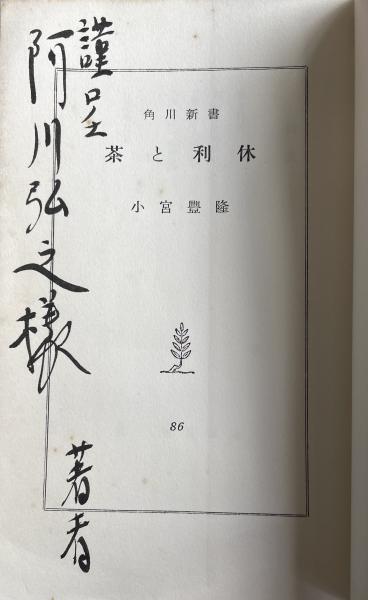 謹呈
阿川弘之様
著者
角川新書
茶と利休
小宮豐隆
86